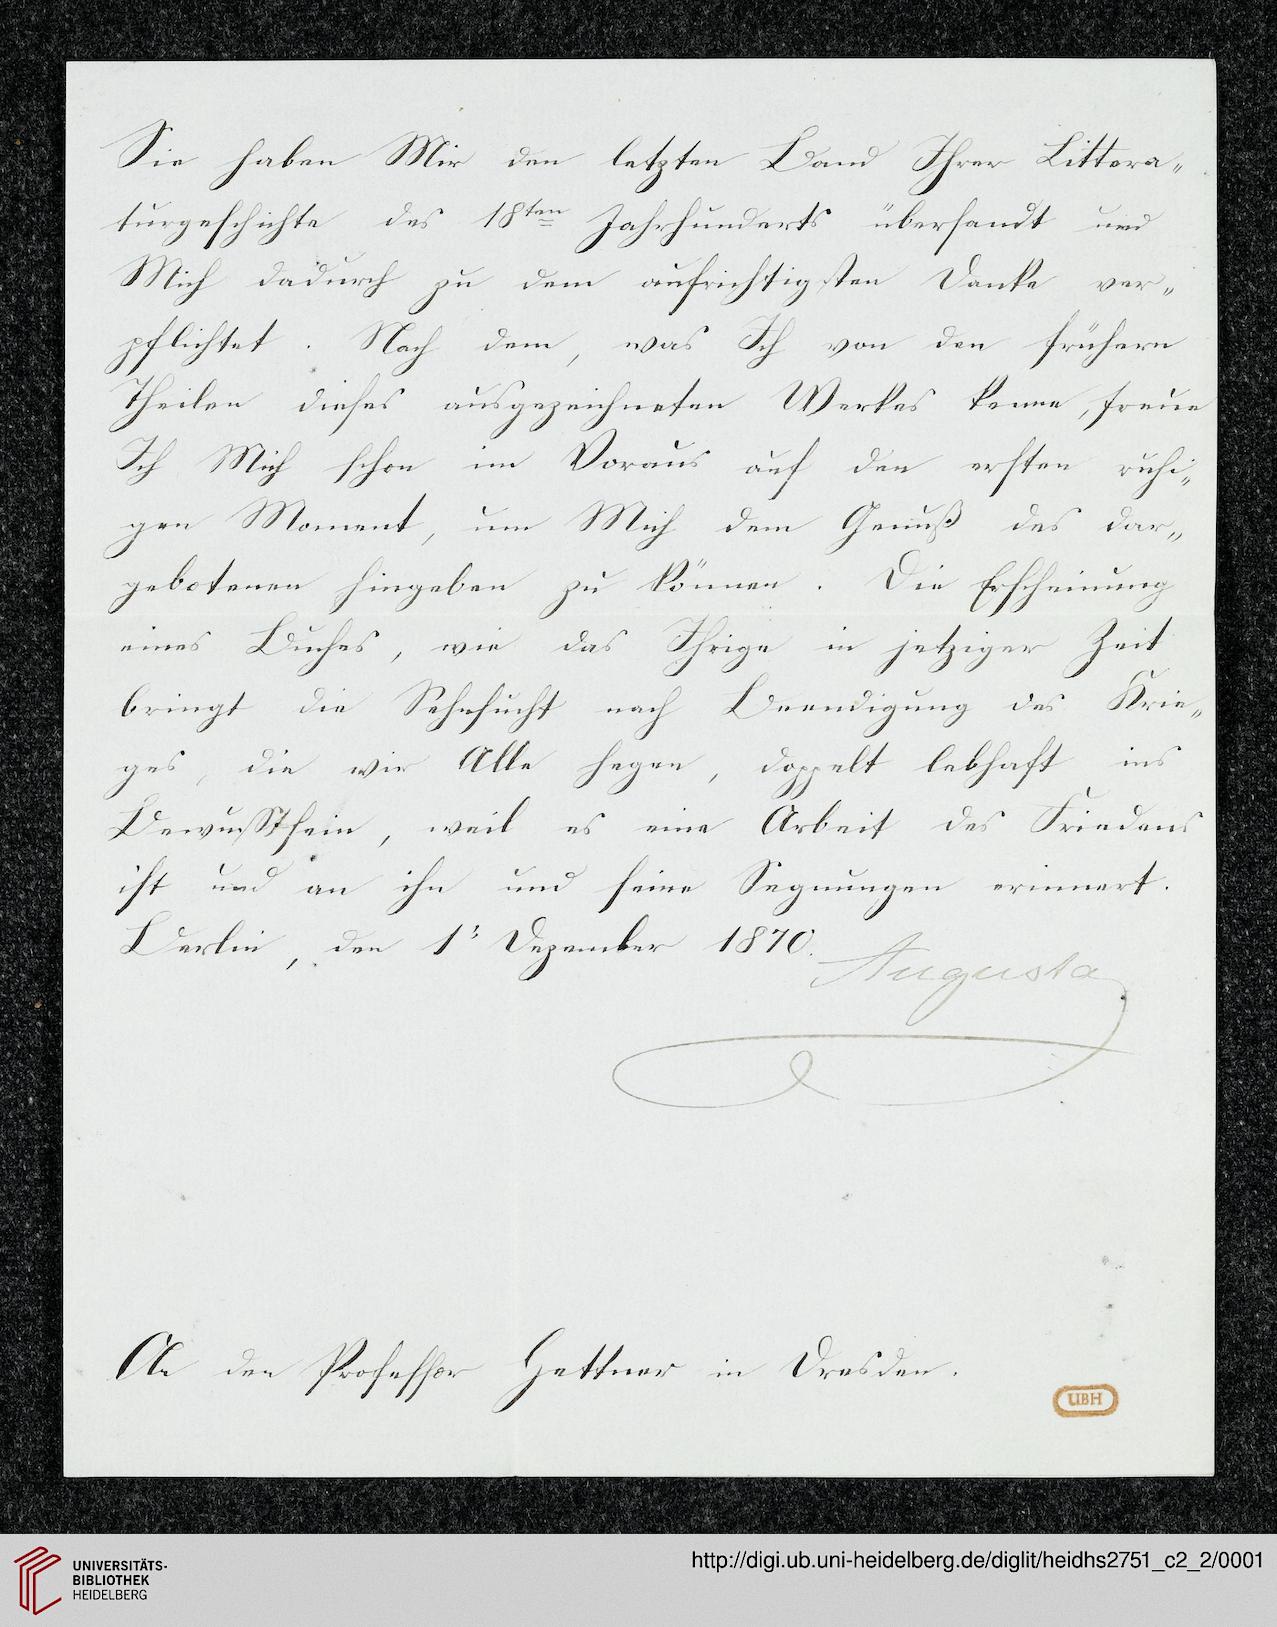 Sie haben Mir den letzten Band Ihrer Littera„
turgeschichte des 18ten Jahrhunderts übersandt und
Mich dadurch zu dem aufrichtigsten Danke ver„
pflichtet. Nach dem, was Ich von den frühern
Theilen dieses ausgezeichneten Werkes kenne, freue
Ich Mich schon im Voraus auf den ersten ruhi„
gen Moment, um Mich dem Genuß des dar„
gebotenen hingeben zu können. Die Erscheinung
eines Buches, wie das Ihrige in jetziger Zeit
bringt die Sehnsucht nach Beendigung des Krie„
ges, die wir Alle hegen, doppelt lebhaft ins
Bewusstsein, weil es eine Arbeit des Friedens
ist und an ihn und seine Segnungen erinnert.
Berlin, den 1r Dezember 1870.
Augusta
An den Professor Hettner in Dresden.
UBH
UNIVERSITÄTS-
BIBLIOTHEK
HEIDELBERG
http://digi.ub.uni-heidelberg.de/diglit/heidhs2751_c2_2/0001